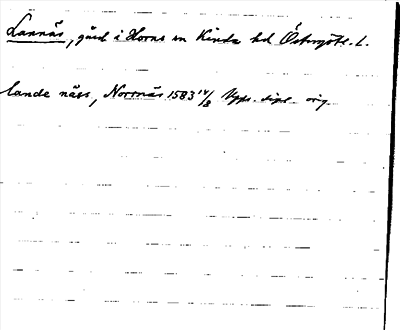 Lannäs, gård i Horns sn Kinda hd Östergötl. L.
lande näss, Norrnäs 1583 14/3 Upps. dipl. orig.